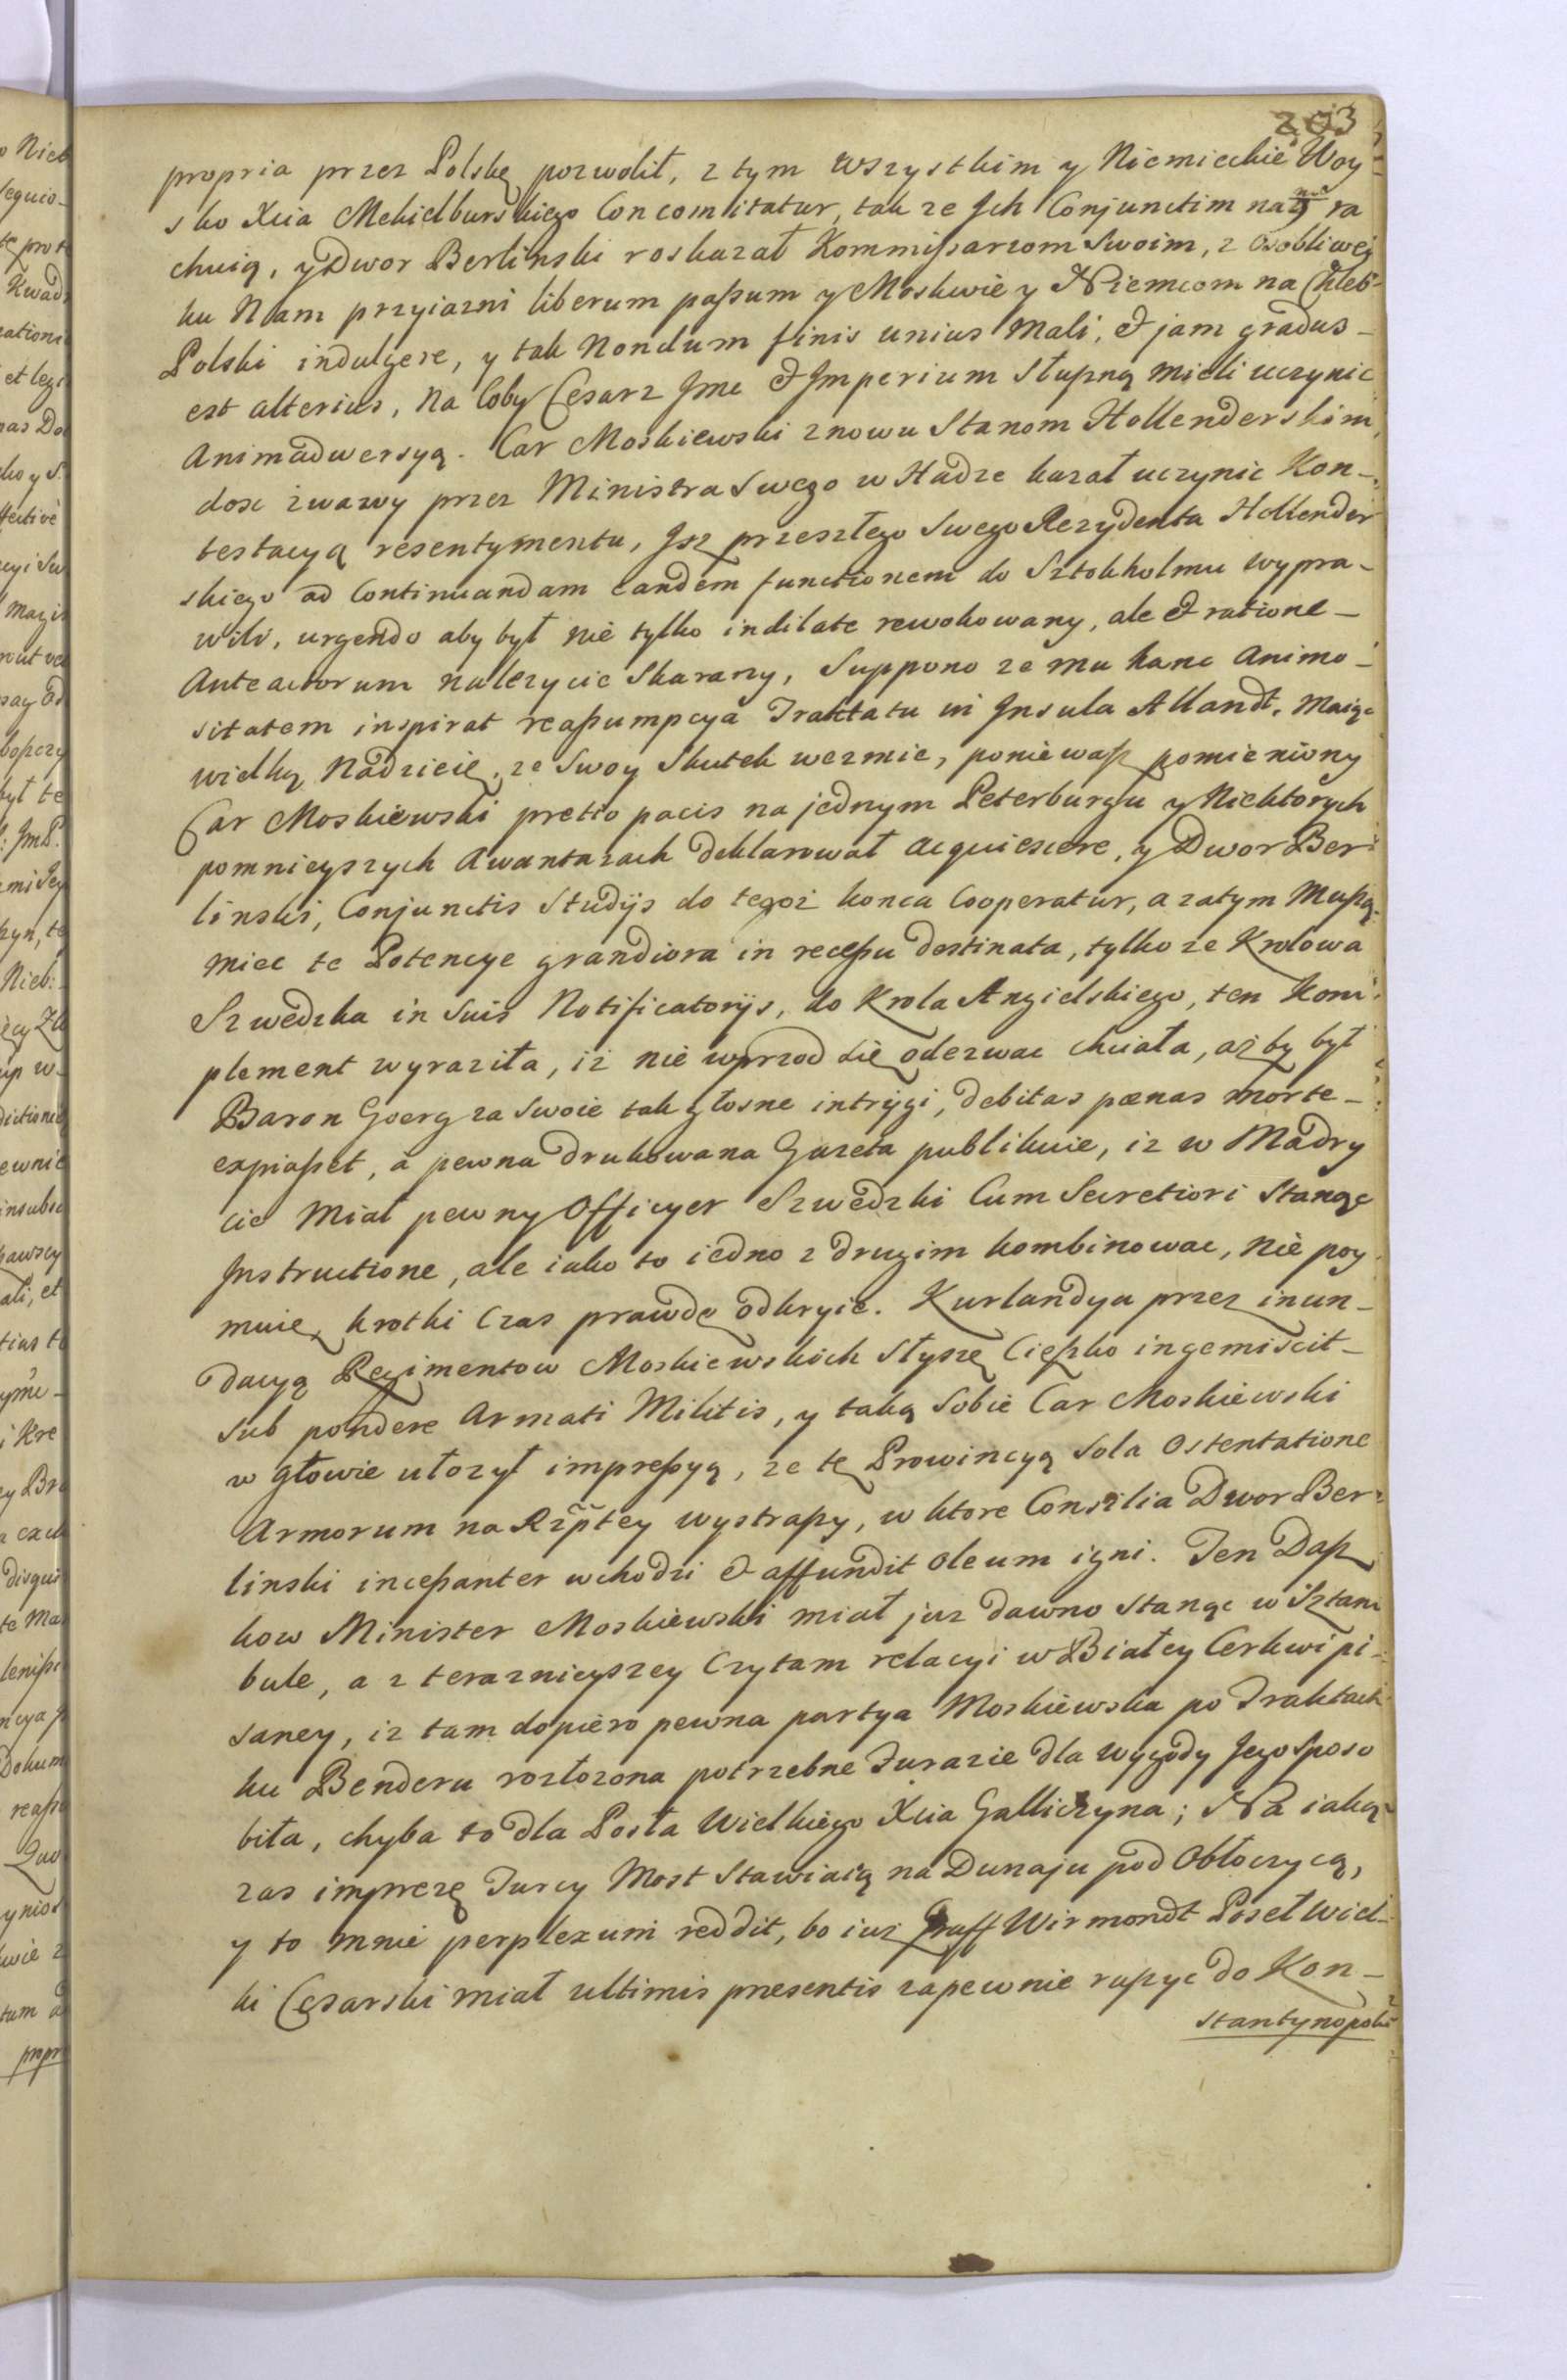 203
propria przez Polskę pozwolił, z tym wszystkim y Niemieckie Woy-
sko Xcia Mekielburskiego Concomitatur, tak ze Ich Conjunctim na ra
chuią, y Dwor Berlinski roskazał Kommissarzom Swoim, z osobliwey
ku Nam przyiazni liberum passum y Moskwie y Niemcom na Chleb
Polski indulgere, y tak Nondum finis unius mali, & jam gradus
est alterius, Na Coby Cesarz Jmc & Imperium Słuszną mieli uczynic
Animadwersyą. Car Moskiewski znowu Stanom Hollenderskim,
dosc żwawy przez Ministra Swego w Hadze kazał uczynic Kon-
testacyą resentymentu, Isz przeszłego Swego Rezydenta Hollender
skiego ad Continuandam eandem functionem do Sztokholmu wypra-
wili, urgendo aby był nie tylko indilate rewokowany, ale & ratione
Anteactorum nalezycie Skarany, Suppono ze mu hanc Animo-
sitatem inspirat reassumpcya Traktatu in Insula Allandt. Maiąc
wielką Nadzieię, ze Swoy Skutek wezmie, poniewasz pomieniony
Car Moskiewski pretio pacis na jednym Peterburgu y Niektorych
pomnieyszych Awantazach deklarował acquiescere, y Dwor Ber
linski, Conjunctis Studijs do tegoż konca Cooperatur, a zatym Muszą
miec te Potencye grandiora in recessu destinata, tylko ze Krolowa
Szwedzka in Suis Notificatorijs, do Krola Angielskiego, ten Kom
plement wyraziła, iz nie wprzod się odezwac chciała, aż by był
Baron Goerg za Swoie tak głosne intrygi, debitas pœnas morte
expiasset, a pewna drukowana Gazeta publikuie, iz w Madry
cie Miał pewny Officyer Szwedzki Cum Secretiori Stanąc
Instructione, ale iako to iedno z drugim kombinowac, nie poy
muię, krotki Czas prawdę odkryie. Kurlandya przez inun-
dacyą Regimentow Moskiewskich Słyszę Cięszko ingemiscit
sub pondere Armati Militis, y taką Sobie Car Moskiewski
w głowie ułozył impressyą, ze tę Prowincyą Sola Ostentatione
Armorum na Rzptey wystraszy, w ktore Consilia Dwor Ber
linski incessanter wchodzi & affundit oleum igni. Ten Dasz
kow Minister Moskiewski miał juz dawno Stanąc w Sztam
bule, a z terazneyszey Czytam relacyi w Białey Cerkwi pi-
saney, iz tam dopiero pewna partya Moskiewska po Traktach
ku Benderu rozłozona potrzebne Zurazie dla wygody Jego Sposo
biła, chyba to dla Posła Wielkiego Xcia Galliczyna; Na iaką
zas imprezę Turcy Most Stawiaią na Dunaju pod Obłoczycą,
y to mnie perplexum reddit, bo iuz Graff Wirmondt Poseł Wiel-
ki Cesarski miał ultimis presentis zapewnie ruszyc do Kon-
stantynopola